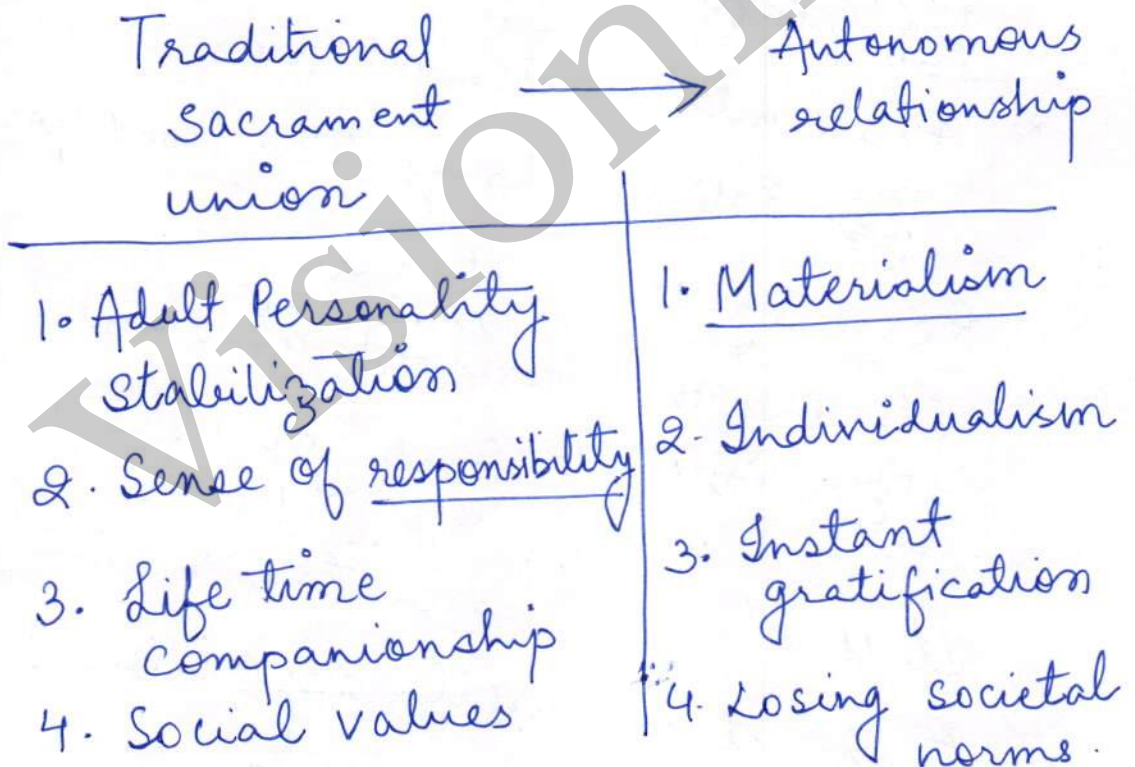 Traditional
sacrament
union
→
Autonomous
relationship
1. Adult Personality
stabilization
2. Sense of responsibility
3. Life time
companionship
4. Social values
1. Materialism
2. Individualism
3. Instant
gratification
4. Losing societal
norms.
Vision